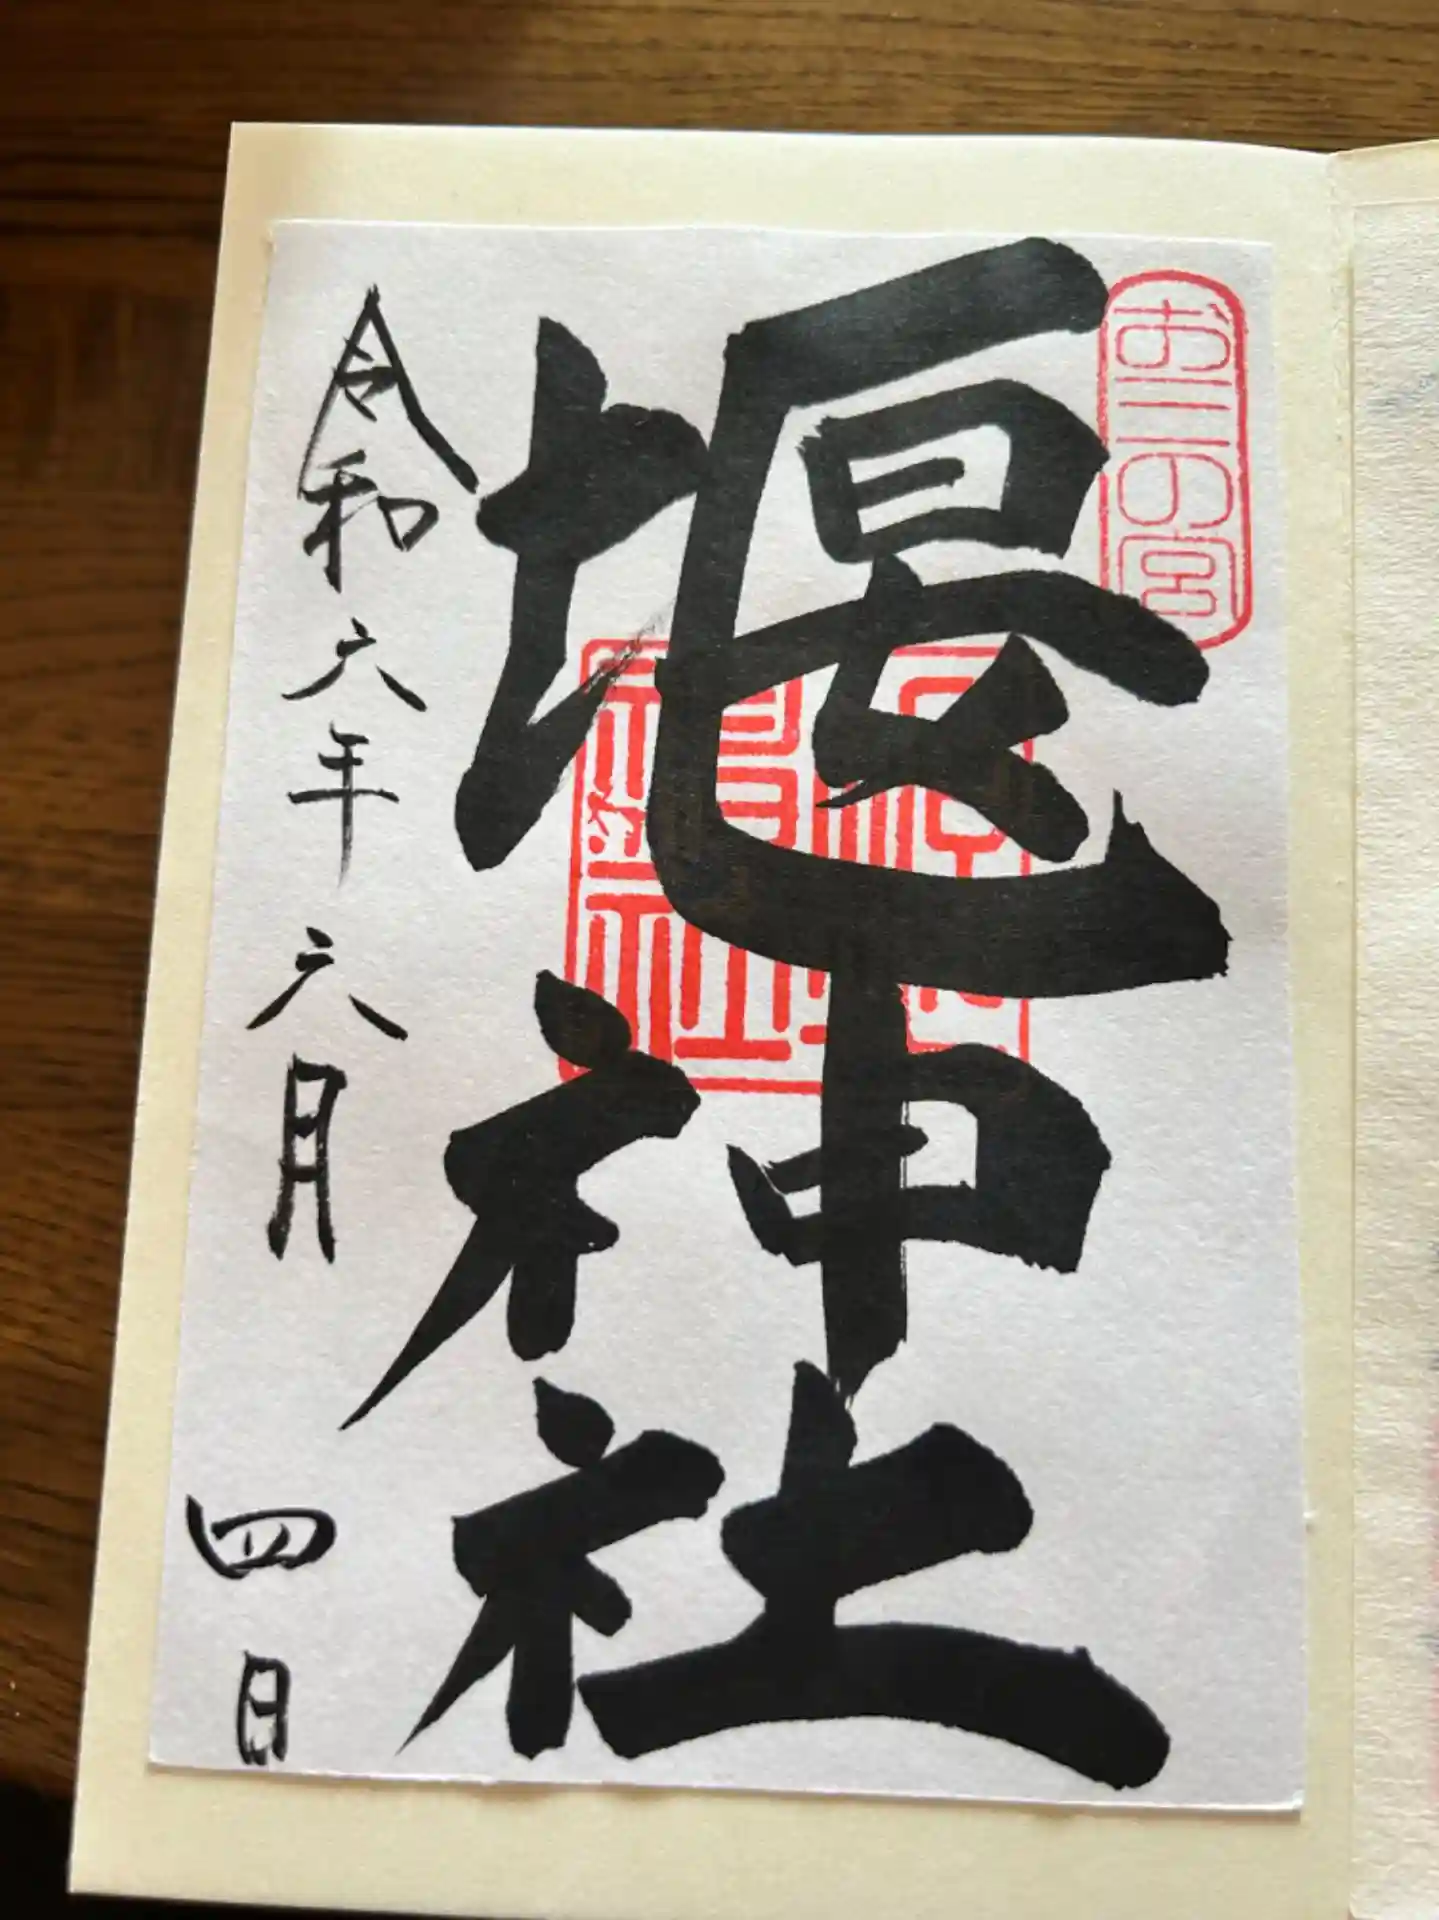 お三の宮
堰神社
令和六年六月四日